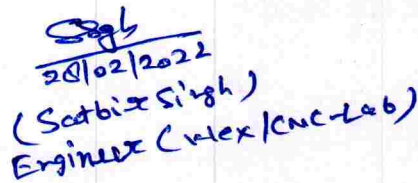 Ssgh
28/02/2022
(Satbir Singh)
Engineer (Mex/CNC-Lab)